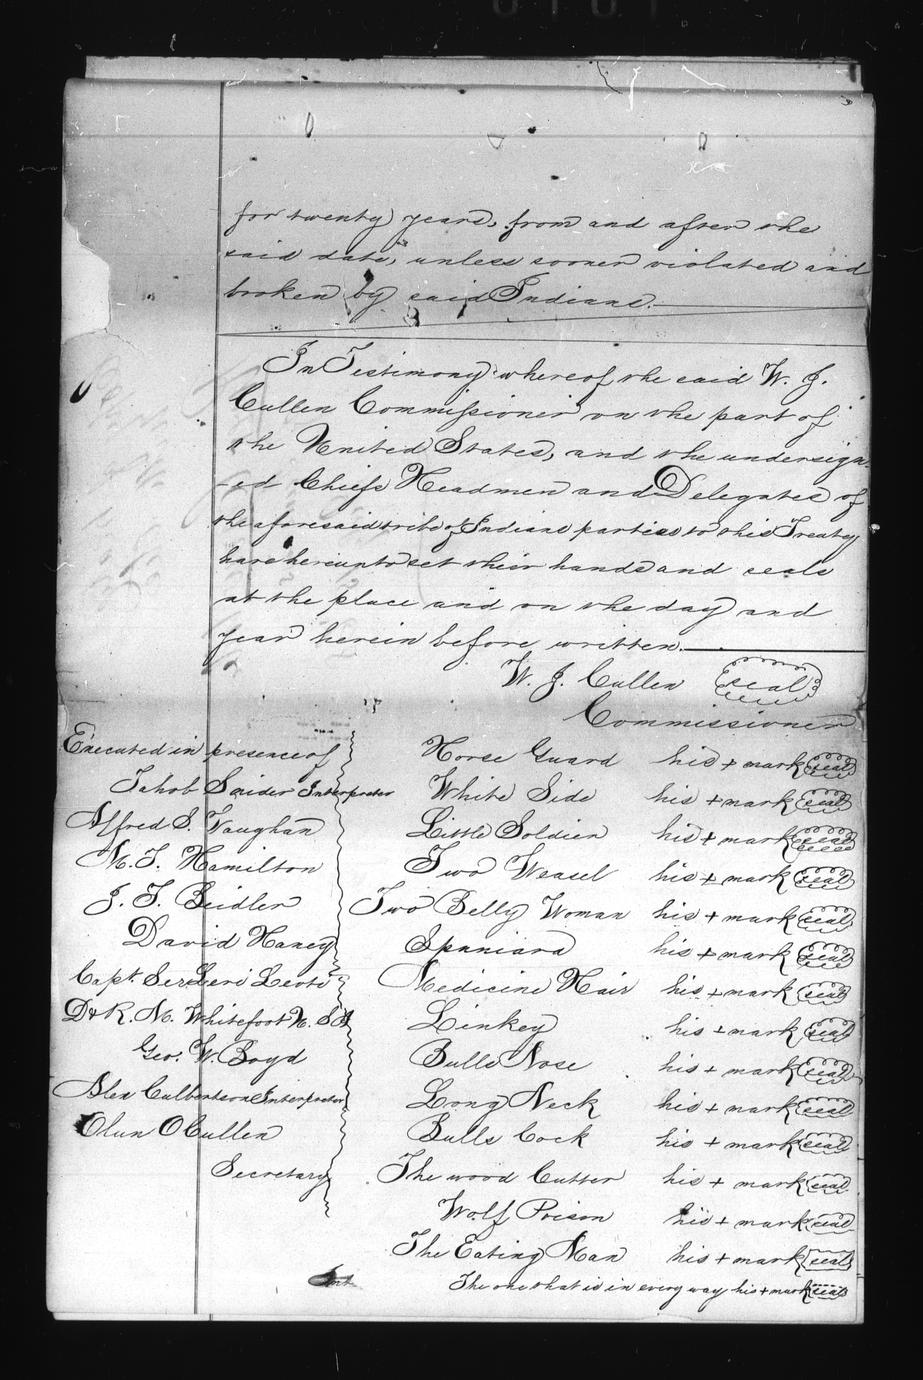 for twenty years, from and after the
said date, unless sooner violated and
broken by said Indians.
In Testimony whereof the said W. J.
Cullen Commissioner on the part of
the United States, and the undersign-
-ed Chiefs Headmen and Delegates of
the aforesaid tribe of Indians parties to this Treaty
have hereunto set their hands and seals
at the place and on the day and
year herein before written.
W. J. Cullen seal
Commissioner
Executed in presence of
Jahob Snider Interpreter
Alfred S. Vaughan
M. T. Hamilton
J. T. Beidler
David Haney
Capt.
Dr R. N. Whitefoot
Geo. W. Boyd
Alex Culbertson Interpreter
Olun O Cullen
Secretary
Horse Guard his + mark seal
White Side his + mark seal
Little Soldier his + mark seal
Two Weasel his + mark seal
Two Belly Woman his + mark seal
Spaniard his + mark seal
Medicine Hair his + mark seal
Linkey his + mark seal
Bulls Nose his + mark seal
Long Neck his + mark seal
Bulls Cock his + mark seal
The wood Cutter his + mark seal
Wolf Prison his + mark seal
The Eating Man his + mark seal
The one that is in every way his + mark seal